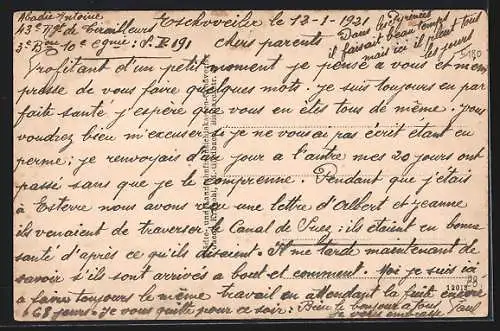 Abadie Antoine
43e Rgt de Tirailleurs
3e Bon 10e Cgnie : S.P. 191
Eschweiler le 13-1-1921
Chers parents
Dans les Pyrénées
il faisait beau temps
mais ici il pleut tous
les jours
Profitant d'un petit moment je pense à vous et m'em
presse de vous faire quelques mots. je suis toujours en par
faite santé j'espère que vous en êtes tous de même. Vous
voudrez bien m'excuser si je ne vous ai pas écrit étant en
perme; je renvoyais d'un jour a l'autre mes 20 jours ont
passé sans que je le comprenne. Pendant que j'étais
à Esterre nous avons reçu une lettre d'Albert et Jeanne
ils venaient de traverser le Canal de Suez; ils étaient en bonne
santé d'après ce qu'ils disaient. Il me tarde maintenant de
savoir s'ils sont arrivés a bout et comment. Moi je suis ici
a faire toujours le même travail en attendant la fuite encore
68 jours. Je vous quitte pour ce soir: Bien le bonjour a tous
je vous embrasse Paul
12012